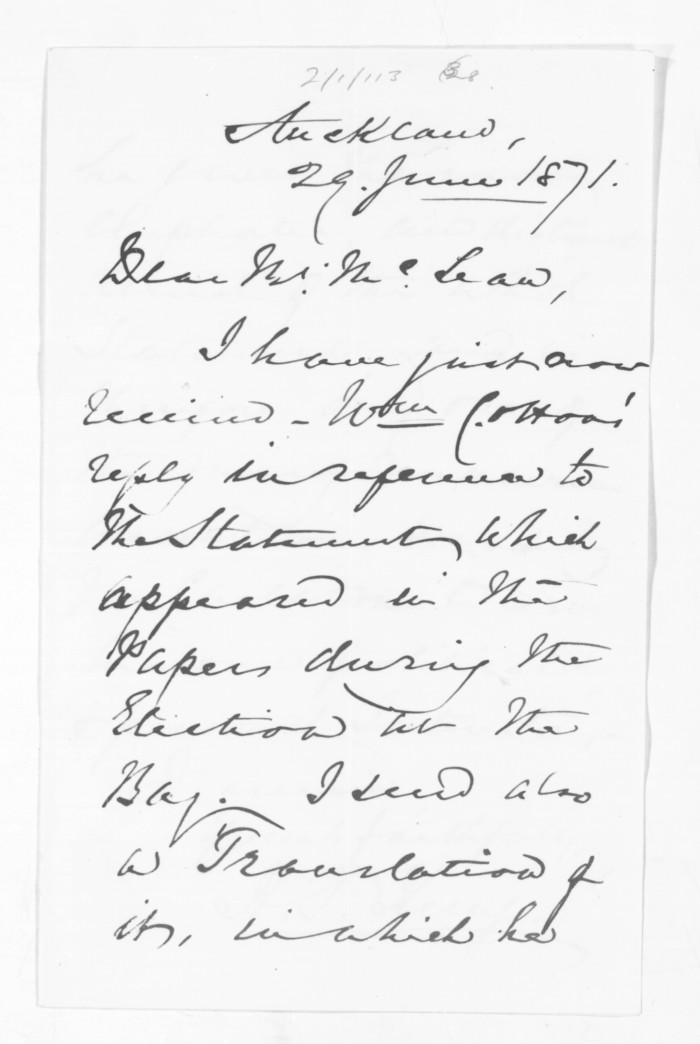 2/1/113
Auckland,
29. June 1871.
Dear Mr. McLean,
I have just now
received - Wm
reply in reference to
the Statement which
appeared in the
Papers during the
Election at the
Bay. I send also
a Translation of
it, in which he